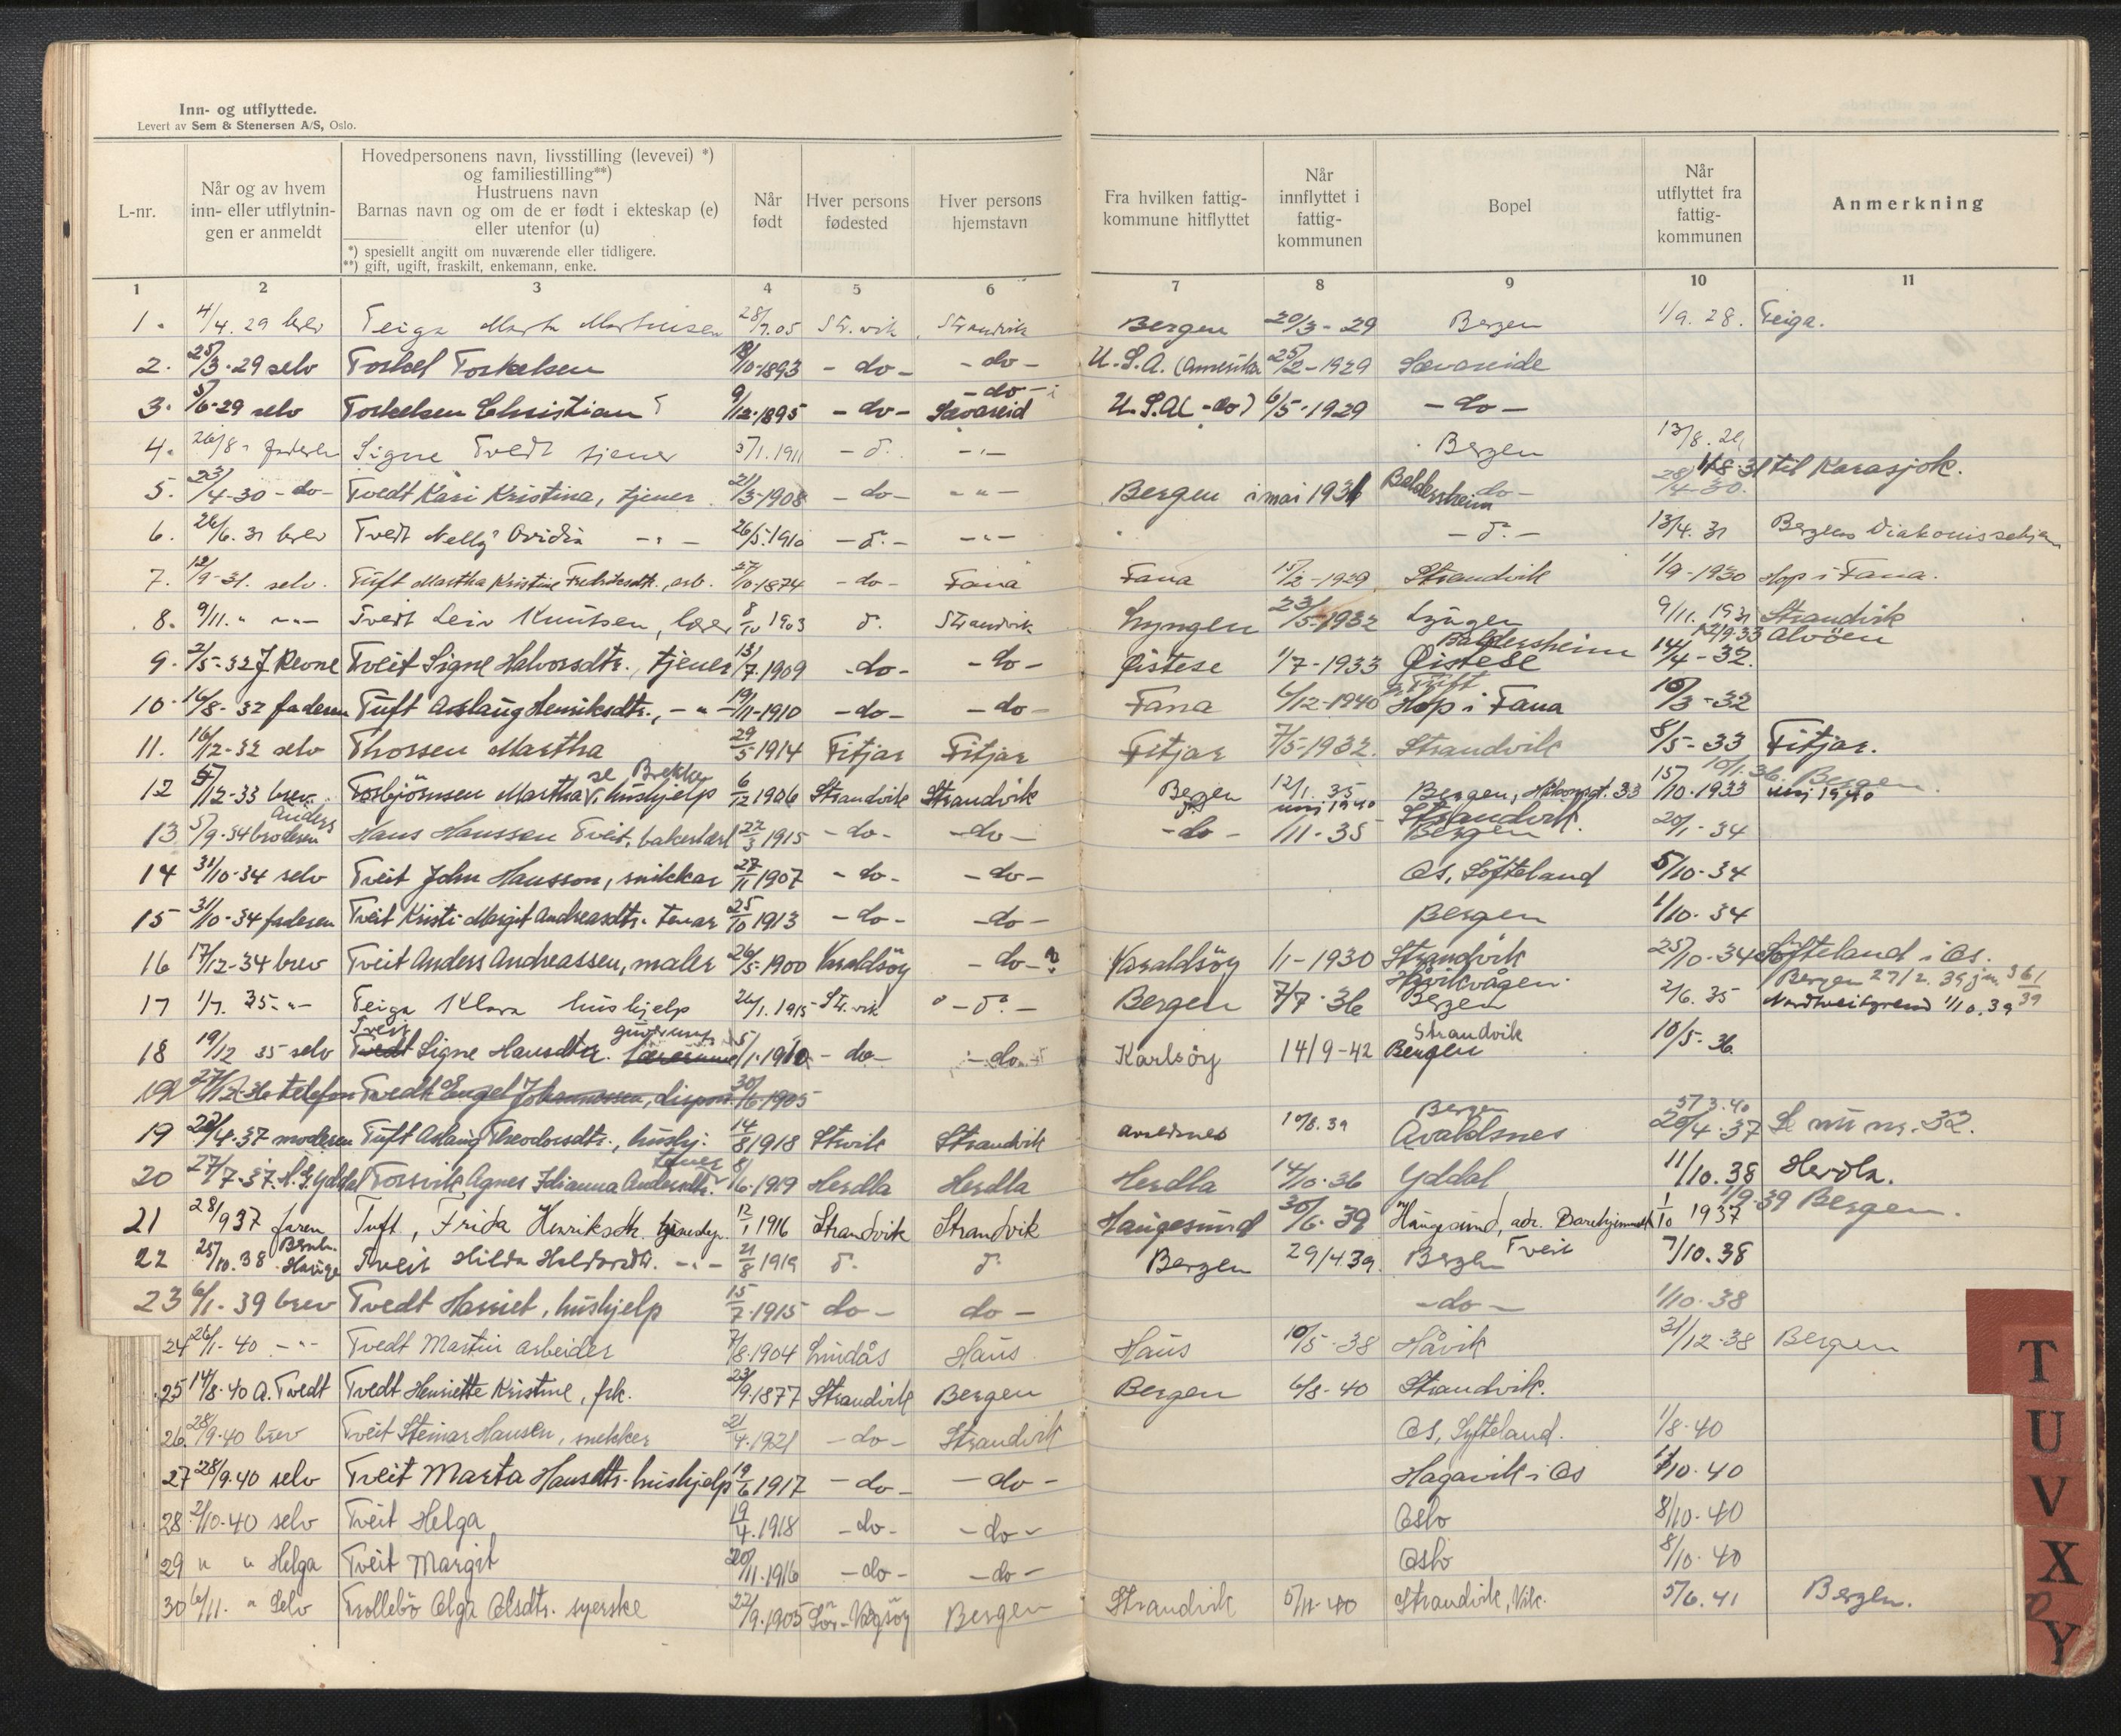 Inn- og utflyttede.
Levert av Sem & Stenersen A/S, Oslo.
L-nr.
Når og av hvem
inn- eller utflytnin-
gen er anmeldt
Hovedpersonens navn, livsstilling (levevei) *)
og familiestilling**)
Hustruens navn
Barnas navn og om de er født i ekteskap (e)
eller utenfor (u)
*) spesiellt angitt om nuværende eller tidligere.
**) gift, ugift, fraskilt, enkemann, enke.
Når
født
Hver persons
fødested
Hver persons
hjemstavn
Fra hvilken fattig-
kommune hitflyttet
Når
innflyttet i
fattig-
kommunen
Bopel
Når
utflyttet fra
fattig-
kommunen
Anmerkning
1 2 3 4 5 6 7 8 9 10 11
1. 4/4. 29 brev Teiga Marta Martinsen 28/7.05 Str.vik Strandvik Bergen 20/3-29 Bergen 1/9.28. Teiga.
2. 25/3-29 selv Torkel Torkelsen 18/10-1893 -do- -do- U.S.A. (Amerika 25/2-1929 Sævareide
3. 5/6-29 selv Torkelsen Christian 9/12-1895 -do- -do- i Sævareid U.S.A( -do) 6/5-1929 -do-
4. 26/8 " faderen Signe Tvedt tjener 5/1.1911 -d. -"- Bergen 13/8.29
5. 23/4-30 -do- Tvedt Kari Kristina, tjener 21/3-1908 -do- -"- Bergen i mai 1931 Baldersheim -do- 28/4-30. 1/8-31 til Karasjok.
6. 26/6. 31 brev Tvedt Nelly Ovidia -"- 26/5.1910 -d.- -"- -d.- 13/4.31 Bergens Diakonissehjem
7. 12/9-31. selv. Tuft Martha Kristine arb. 27/10-1874 -do- Fana Fana 15/2-1929 Strandvik 1/9-1930 Hop i Fana.
8. 9/11. " -"- Tveit Leiv Knutsen, lærer 8/10 1903 d. Strandvik Lyngen 23/5-1932 Lyngen 9/11.1931 Strandvik
9. 2/5-32 J. Revne Tveit Signe Halvorsdtr., tjener 13/7.1909 -do- -do- Øistese 1/7-1933 Baldersheim Øistese 14/4-32. 12/9-33 Alvöen
10. 16/8-32 faderen Tuft Aslaug Henriksdtr., -"- 19/11-1910 -do- -do- Fana 6/12-1940 Tuft Hop i Fana 10/3-32
11. 16/12-32 selv Thorsen Martha 29/5-1914 Fitjar Fitjar Fitjar 7/5-1932. Strandvik 8/5-33 Fitjar.
12 5/12-33 brev Torbjörnsen Martha V. hushjelp se Brekke 6/12 1906 Strandvik Strandvik Bergen 12/1.35 Bergen, 33 15/10-1933 10/1.36. Bergen. juni 1940 Strandvik.
13 5/9-34 broderen Anders Hans Hanssen Tveit, bakerlærl 22/3 1915 -do- -do- -do- 1/11-35 Bergen 20/1-34
14 31/10-34 selv Tveit John Hansson, snikkar 27/11 1907 -do- -do- Os, Söfteland 5/10-34
15 31/10-34 faderen Tveit Kristi Margit Andreasdtr. tenar 25/10 1913 -do- -do- Bergen 1/10.34
16 17/12-34 brev Tveit Anders Andreassen, maler 26/5-1900 Varaldsöy -do-? Varaldsöy 1/1-1930 Strandvik 25/10-34 Söfteland i Os.
17 1/7. 35 -"- Teiga Klara hushjelp 26/1.1915 Str.vik -d.- Bergen 7/7-36 Håvikvågen. Bergen 2/6.35 Bergen 27/2.39 Nordtveitgrend 1/10.39
18 19/12 35 selv Tvedt Tveit Signe Hansdtr. Lærerinne guvernante 5/1.1910 -do- -do- Karlsöy 14/9-42 Bergen Strandvik 10/5-36
19 27/12-36 telefon Tvedt Engel Johannessen, dispon. 30/6-1905
19 20/4-37 moderen Tuft Aslaug Theodorsdtr., hushj. 14/8 1918 Str.vik Strandvik Avaldsnes 10/8.39 Bergen Avaldsnes 20/4-37 5/3.40 Se nu nr. 32.
20 27/7-37. Yddal Torsvik, Agnes Idianna Andersdtr. tener 8/6-1919 Herdla Herdla Herdla 14/10-36 Yddal 11/10.38 Herdla.
21 28/9 37 faren Tuft, Frida Henriksdtr. 12/1 1916 Strandvik Strandvik Haugesund 30/6-39 Haugesund, adr. Barnehjemmet 1/10 1937 1/9-39 Bergen.
22 25/10.38 Hauge Tveit Hilda Haldorsdtr. -"- 21/8 1919 d. d. Bergen 29/4.39. Bergen Tveit 7/10.38
23 6/1-39 brev Tvedt Harriet, hushjelp 15/7-1915 do- do- -do- 1/10-38
24 26/1-40 -"- Tvedt Martin arbeider 7/8-1904 Lindås Haus Haus 10/5-38 Håvik 31/12-38 Bergen
25 14/8-40 A. Tvedt Tvedt Henriette Kristine, frk. 23/9.1877 Strandvik Bergen Bergen 6/8-40 Strandvik.
26. 28/9-40 brev Tveit Steinar Hansen, snekker 21/4.1921 -do- Strandvik Os, Syfteland. 1/8-40
27 28/9.40 selv Tveit Marta Hansdtr. hushjelp 19/6 1917 -do- -do- Hagavik i Os 1/10.40
28 2/10-40 selv Tveit Helga 19/4.1918 -do- -do- Oslo 8/10-40
29 " " Helga Tveit Margit 20/11.1916 -do- -do- Oslo 8/10-40
30 6/11. " Selv Trollebö Olga Olsdtr. syerske 22/9.1905 Sör-Vågsöy Bergen Strandvik 5/11-40 Strandvik, Vik. 5/6.41 Bergen.
T
U
V
X
Y